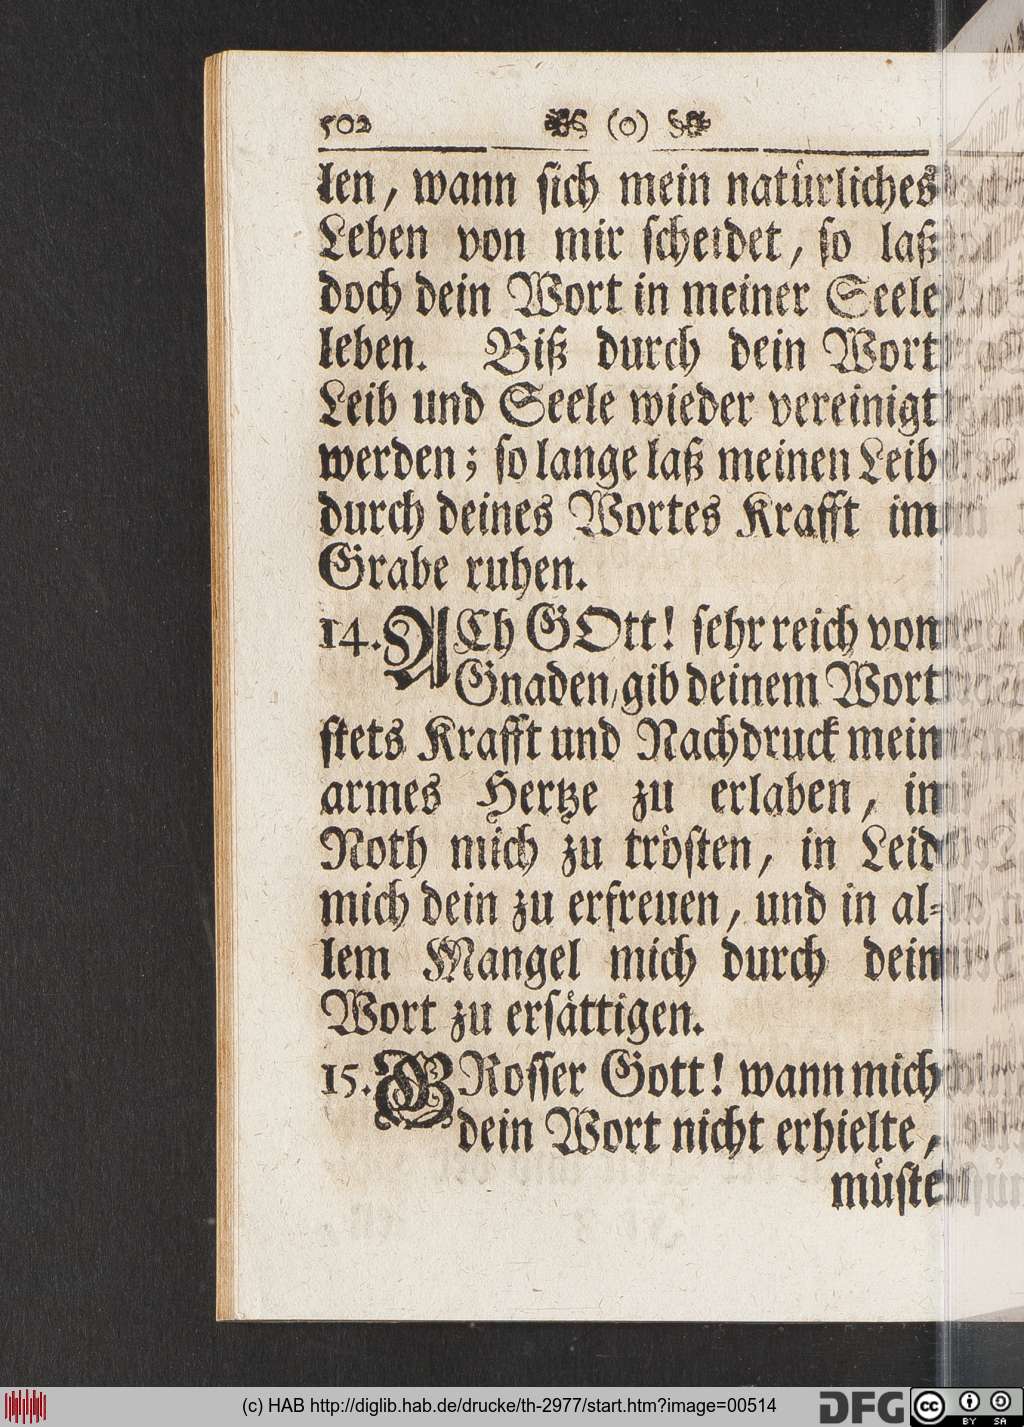 502 (0)
len, wann sich mein natürliches
Leben von mir scheidet, so laß
doch dein Wort in meiner Seele
leben. Biß durch dein Wort
Leib und Seele wieder vereinigt
werden; so lange laß meinen Leib
durch deines Wortes Krafft im
Grabe ruhen.
14. ACh GOtt! sehr reich von
Gnaden, gib deinem Wort
stets Krafft und Nachdruck mein
armes Hertze zu erlaben, in
Noth mich zu trösten, in Leid
mich dein zu erfreuen, und in al-
lem Mangel mich durch dein
Wort zu ersättigen.
15. GRosser Gott! wann mich
dein Wort nicht erhielte,
müste
(c) HAB http://diglib.hab.de/drucke/th-2977/start.htm?image=00514
DFG
cc BY SA